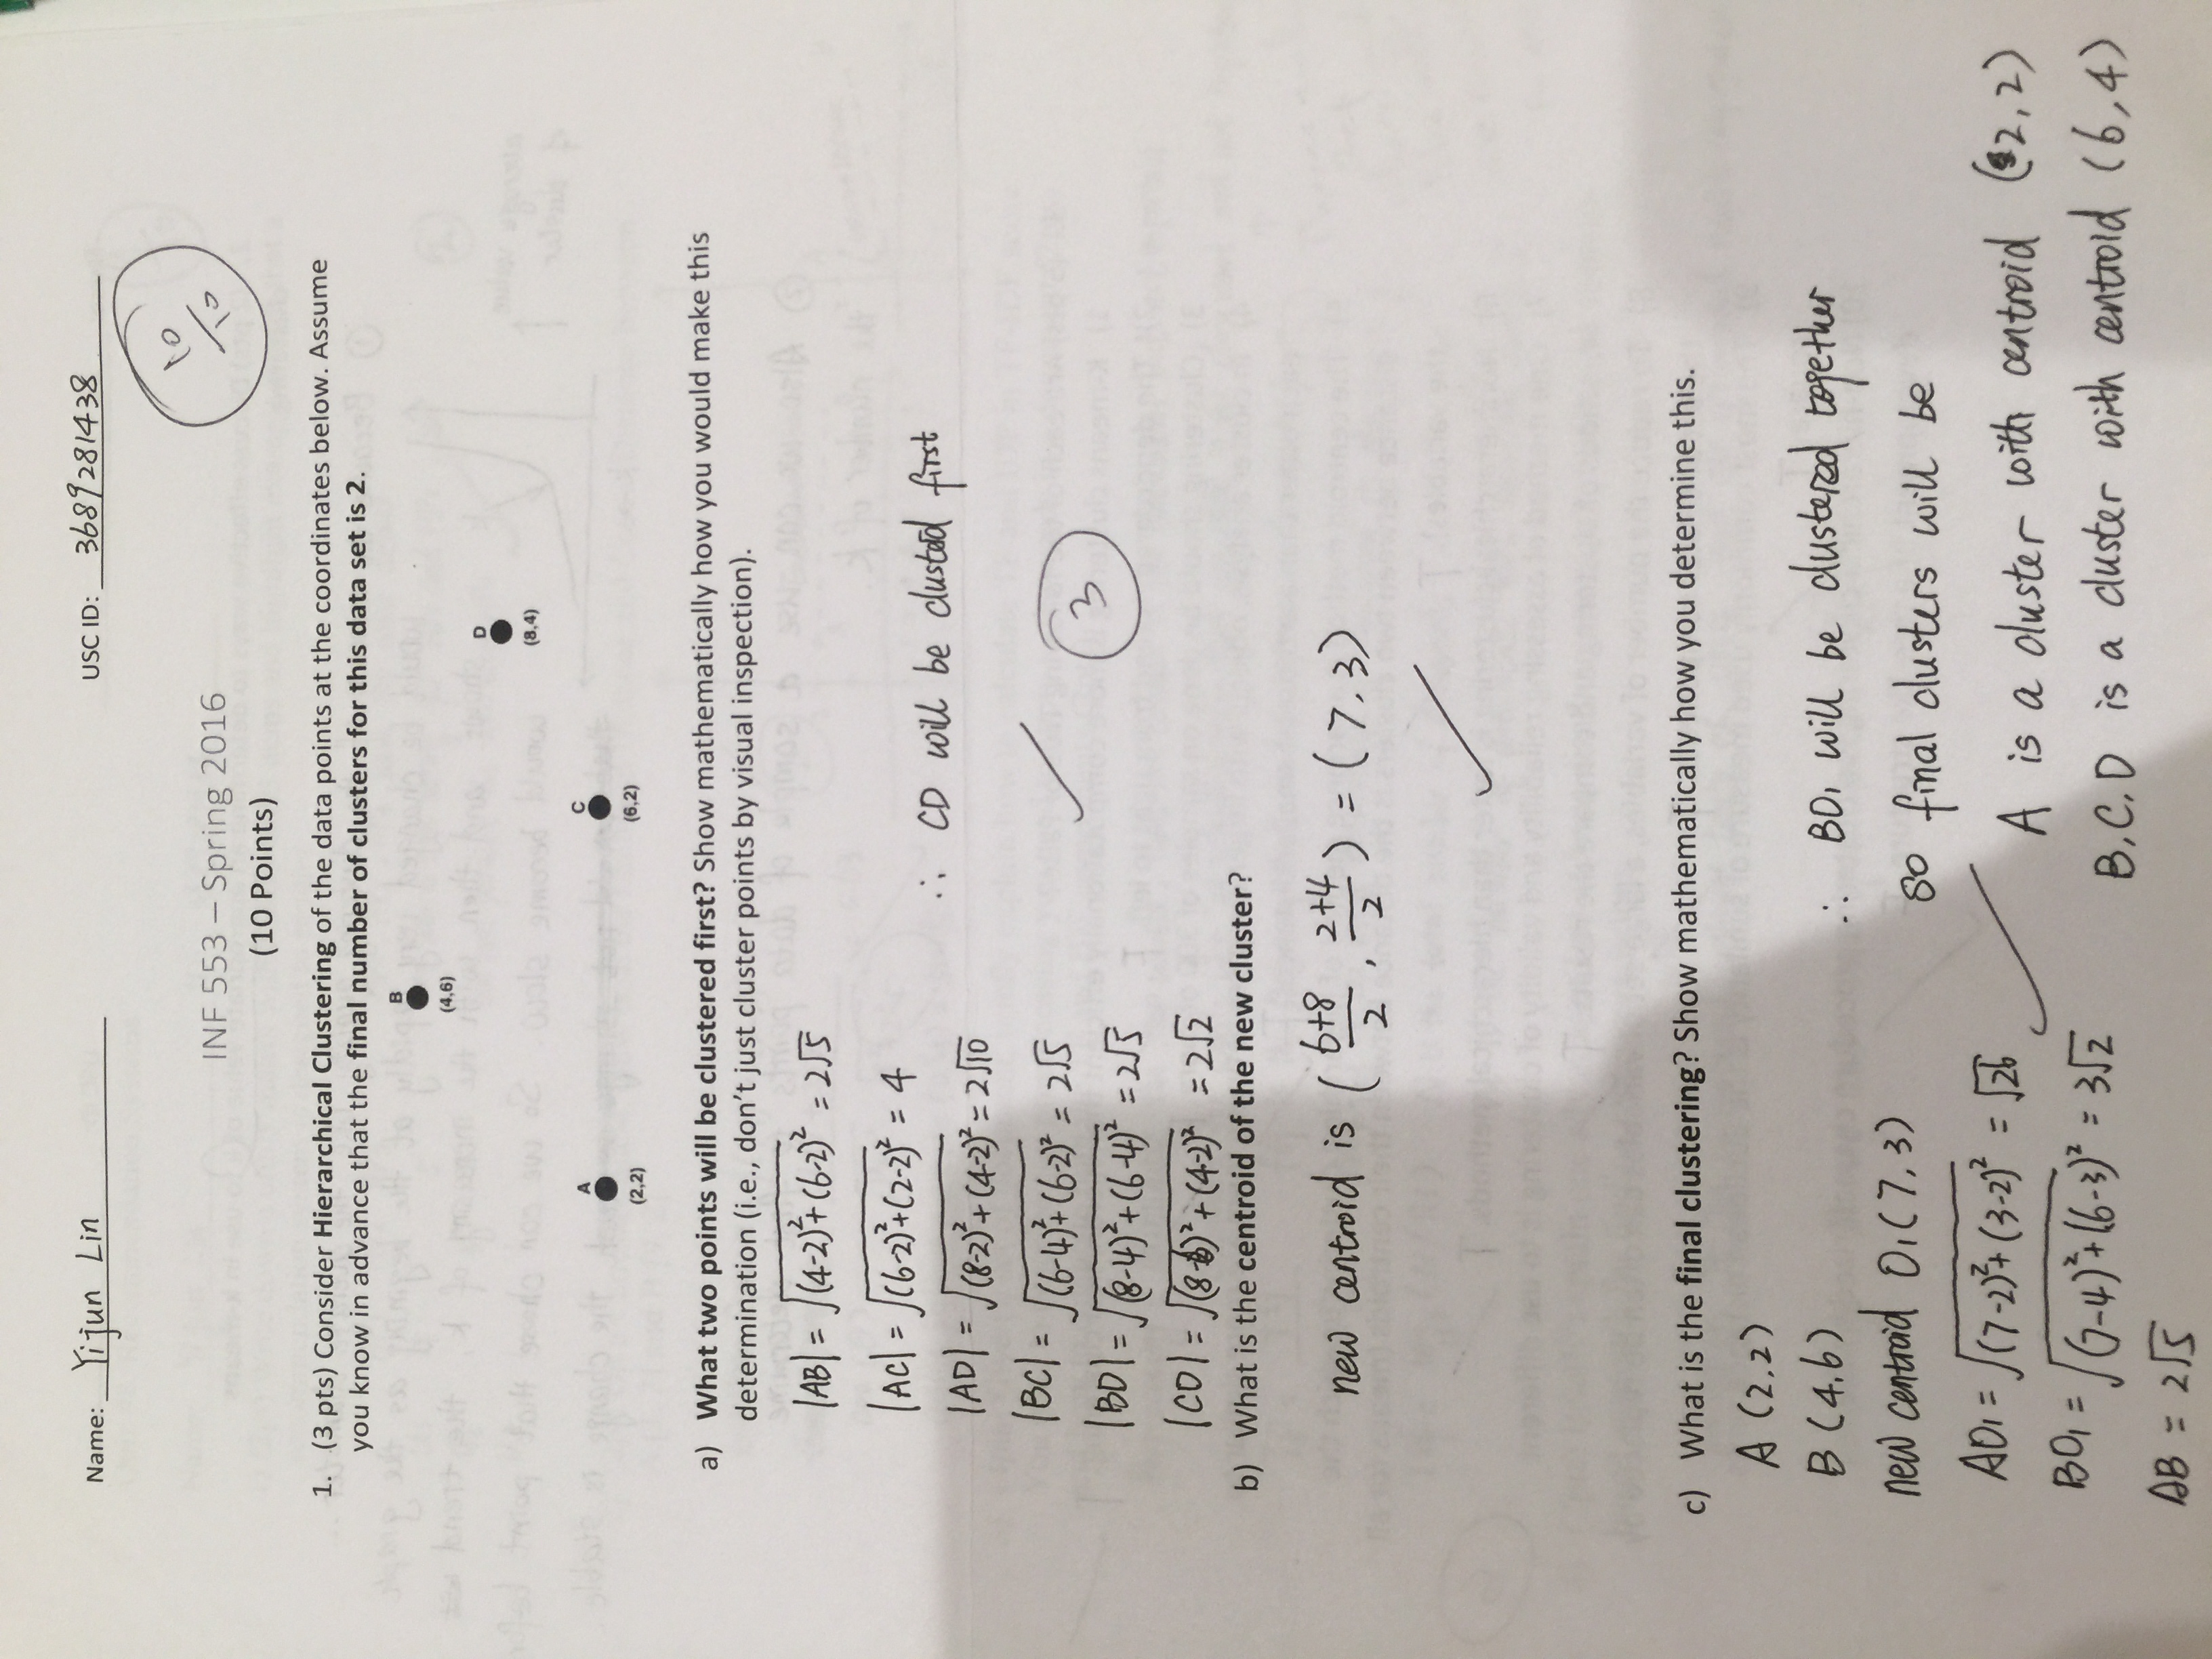 Name: Yijun Lin USC ID: 3689281438
10/10
INF 553 – Spring 2016
(10 Points)
1. (3 pts) Consider Hierarchical Clustering of the data points at the coordinates below. Assume
you know in advance that the final number of clusters for this data set is 2.
B
(4,6)
D
(8,4)
A
(2,2)
C
(6,2)
a) What two points will be clustered first? Show mathematically how you would make this
determination (i.e., don't just cluster points by visual inspection).
|AB| = √(4-2)²+(6-2)² = 2√5
|AC| = √(6-2)²+(2-2)² = 4
∴ CD will be clusted first
|AD| = √(8-2)²+(4-2)² = 2√10
|BC| = √(6-4)²+(6-2)² = 2√5
3
|BD| = √(8-4)²+(6-4)² = 2√5
|CD| = √(8-6)²+(4-2)² = 2√2
b) What is the centroid of the new cluster?
new centroid is (6+8/2, 2+4/2) = (7,3)
c) What is the final clustering? Show mathematically how you determine this.
A (2,2)
B (4,6)
∴ BO₁ will be clustered together
new centroid O₁(7,3)
so final clusters will be
AO₁ = √(7-2)²+(3-2)² = √26
A is a cluster with centroid (2,2)
BO₁ = √(7-4)²+(6-3)² = 3√2
B,C,D is a cluster with centroid (6,4)
AB = 2√5